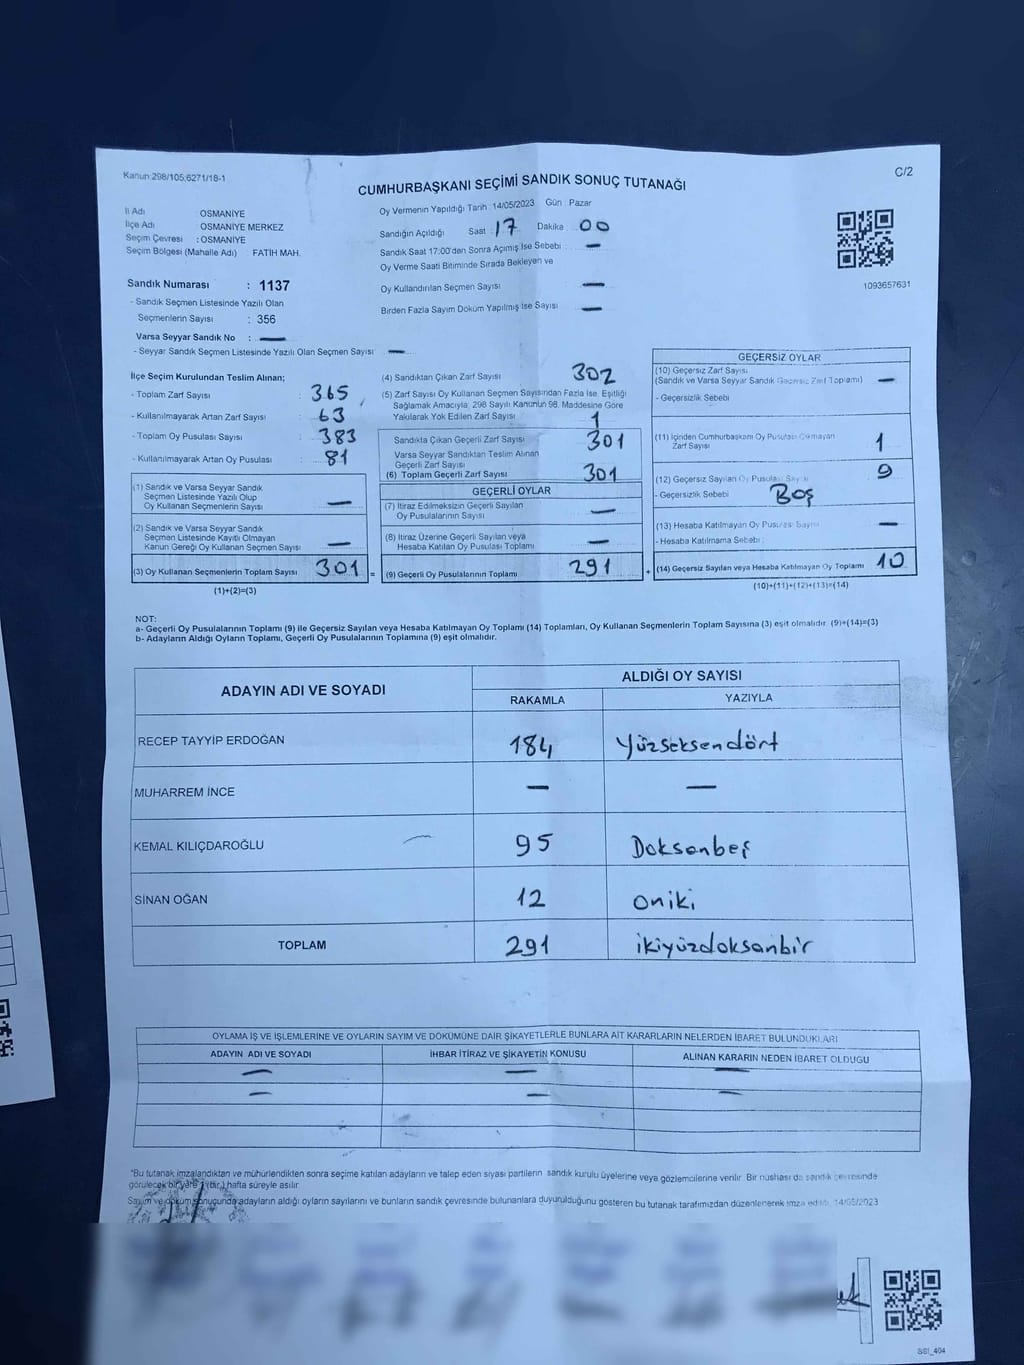 Kanun:298/105;6271/18-1
C/2
CUMHURBAŞKANI SEÇİMİ SANDIK SONUÇ TUTANAĞI
İl Adı OSMANİYE
İlçe Adı OSMANİYE MERKEZ
Seçim Çevresi : OSMANİYE
Seçim Bölgesi (Mahalle Adı) FATİH MAH.
Sandık Numarası : 1137
- Sandık Seçmen Listesinde Yazılı Olan
Seçmenlerin Sayısı : 356
Varsa Seyyar Sandık No : —
- Seyyar Sandık Seçmen Listesinde Yazılı Olan Seçmen Sayısı —
Oy Vermenin Yapıldığı Tarih :14/05/2023 Gün : Pazar
Sandığın Açıldığı Saat : 17 Dakika : 00
Sandık Saat 17:00'den Sonra Açılmış İse Sebebi : —
Oy Verme Saati Bitiminde Sırada Bekleyen ve
Oy Kullandırılan Seçmen Sayısı —
Birden Fazla Sayım Döküm Yapılmış İse Sayısı —
1093657631
İlçe Seçim Kurulundan Teslim Alınan;
- Toplam Zarf Sayısı : 365
- Kullanılmayarak Artan Zarf Sayısı : 63
- Toplam Oy Pusulası Sayısı : 383
- Kullanılmayarak Artan Oy Pusulası : 81
(1) Sandık ve Varsa Seyyar Sandık
Seçmen Listesinde Yazılı Olup
Oy Kullanan Seçmenlerin Sayısı —
(2) Sandık ve Varsa Seyyar Sandık
Seçmen Listesinde Kayıtlı Olmayan
Kanun Gereği Oy Kullanan Seçmen Sayısı —
(3) Oy Kullanan Seçmenlerin Toplam Sayısı 301 =
(1)+(2)=(3)
(4) Sandıktan Çıkan Zarf Sayısı 302
(5) Zarf Sayısı Oy Kullanan Seçmen Sayısından Fazla İse, Eşitliği
Sağlamak Amacıyla, 298 Sayılı Kanunun 98. Maddesine Göre
Yakılarak Yok Edilen Zarf Sayısı 1
Sandıkta Çıkan Geçerli Zarf Sayısı 301
Varsa Seyyar Sandıktan Teslim Alınan
Geçerli Zarf Sayısı
(6) Toplam Geçerli Zarf Sayısı 301
GEÇERLİ OYLAR
(7) İtiraz Edilmeksizin Geçerli Sayılan
Oy Pusulalarının Sayısı —
(8) İtiraz Üzerine Geçerli Sayılan veya
Hesaba Katılan Oy Pusulası Toplamı —
(9) Geçerli Oy Pusulalarının Toplamı 291 +
GEÇERSİZ OYLAR
(10) Geçersiz Zarf Sayısı
(Sandık ve Varsa Seyyar Sandık Geçersiz Zarf Toplamı) —
- Geçersizlik Sebebi
(11) İçinden Cumhurbaşkanı Oy Pusulası Çıkmayan
Zarf Sayısı 1
(12) Geçersiz Sayılan Oy Pusulası Sayısı 9
- Geçersizlik Sebebi Boş
(13) Hesaba Katılmayan Oy Pusulası Sayısı —
- Hesaba Katılmama Sebebi :
(14) Geçersiz Sayılan veya Hesaba Katılmayan Oy Toplamı 10
(10)+(11)+(12)+(13)=(14)
NOT:
a- Geçerli Oy Pusulasının Toplamı (9) ile Geçersiz Sayılan veya Hesaba Katılmayan Oy Toplamı (14) Toplamları, Oy Kullanan Seçmenlerin Toplam Sayısına (3) eşit olmalıdır. (9)+(14)=(3)
b- Adayların Aldığı Oyların Toplamı, Geçerli Oy Pusulalarının Toplamına (9) eşit olmalıdır.
ADAYIN ADI VE SOYADI ALDIĞI OY SAYISI
RAKAMLA YAZIYLA
RECEP TAYYİP ERDOĞAN 184 Yüzseksendört
MUHARREM İNCE — —
KEMAL KILIÇDAROĞLU 95 Doksanbeş
SİNAN OĞAN 12 oniki
TOPLAM 291 ikiyüzdoksanbir
OYLAMA İŞ VE İŞLEMLERİNE VE OYLARIN SAYIM VE DÖKÜMÜNE DAİR ŞİKAYETLERLE BUNLARA AİT KARARLARIN NELERDEN İBARET BULUNDUKLARI
ADAYIN ADI VE SOYADI İHBAR İTİRAZ VE ŞİKAYETİN KONUSU ALINAN KARARIN NEDEN İBARET OLDUĞU
— — —
— — —
*Bu tutanak imzalandıktan ve mühürlendikten sonra seçime katılan adayların ve talep eden siyasi partilerin sandık kurulu üyelerine veya gözlemcilerine verilir. Bir nüshası da sandık çevresinde
görülecek bir yere (bir) hafta süreyle asılır.
Sayım ve döküm sonucunda adayların aldığı oyların sayılarını ve bunların sandık çevresinde bulunanlara duyurulduğunu gösteren bu tutanak tarafımızdan düzenlenerek imza edildi. 14/05/2023
SSI_404